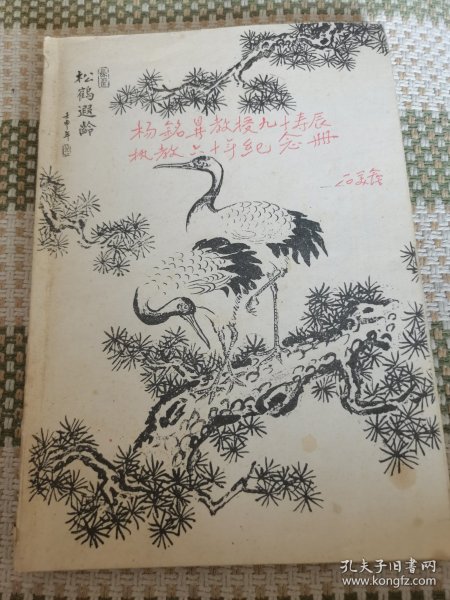 松鹤遐龄
壬申年
杨铭鼎教授九十寿辰
执教六十年纪念册
孔夫子旧书网
www.kongfz.com